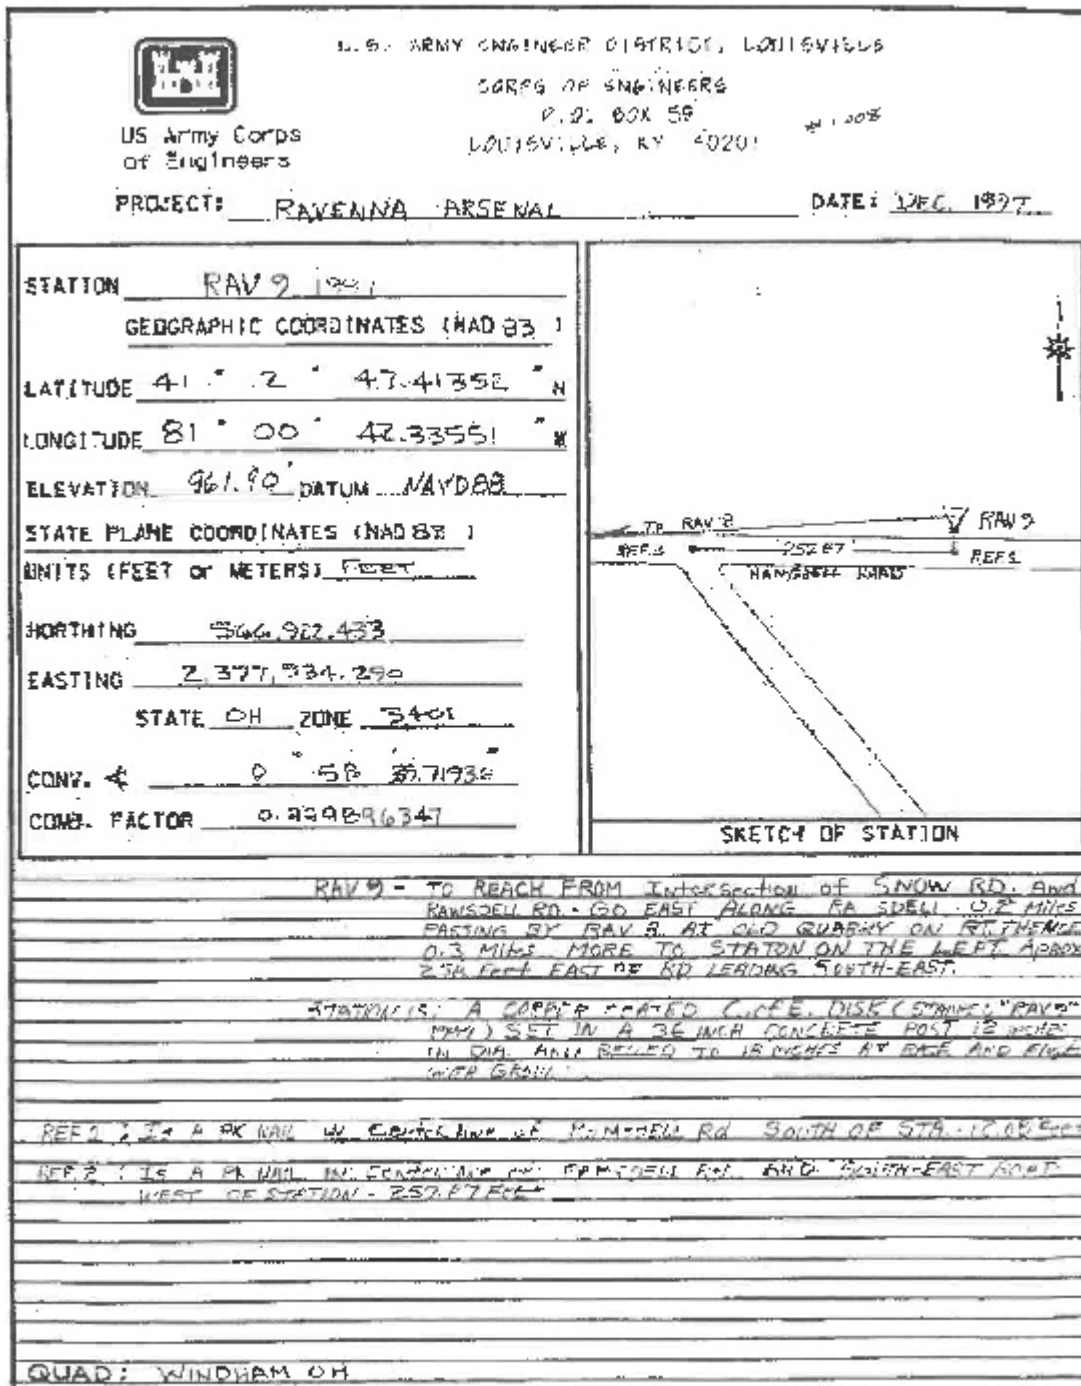 U.S. ARMY ENGINEER DISTRICT, LOUISVILLE
CORPS OF ENGINEERS
P.O. BOX 59
LOUISVILLE, KY 40201
US Army Corps
of Engineers
PROJECT: RAVENNA ARSENAL
DATE: DEC. 1997
STATION RAV 9
GEOGRAPHIC COORDINATES (NAD 83 )
LATITUDE 41 ° 47.41352 " N
LONGITUDE 81 ° 00 ' 42.33551 " W
ELEVATION 961.90' DATUM NAVD88
STATE PLANE COORDINATES (NAD 83 )
UNITS (FEET or METERS) FEET
NORTHING 566,922.433
EASTING 2,377,934.290
STATE OH ZONE 3401
CONV. ∢ 0 ° 58
COMB. FACTOR
TO RAV 8
RAV 9
REF.2
REF.1
ROAD
SKETCH OF STATION
RAV 9 - TO REACH FROM Intersection of SNOW RD. And
RAMSDELL RD. GO EAST ALONG 0.2 Miles
PASSING BY RAV 8 AT OLD QUARRY ON RT. THENCE
0.3 Miles MORE TO STATON ON THE LEFT Aprox
Feet EAST OF RD LEADING SOUTH-EAST.
STATION IS: A COPPER COATED C.of E. DISK (STAMPED "RAV 9"
SET IN A 36 INCH CONCRETE POST 12 INCHES
IN DIA. AND BELLED TO 18 INCHES AT BASE AND FLUSH
WITH
REF 1 : IS A PK NAIL IN CENTERLINE OF Rd SOUTH OF STA.
REF. 2 : IS A PK NAIL IN CENTERLINE OF RD. AND SOUTH-EAST ROAD
WEST OF STATION - 257.87 FEET
QUAD: WINDHAM OH